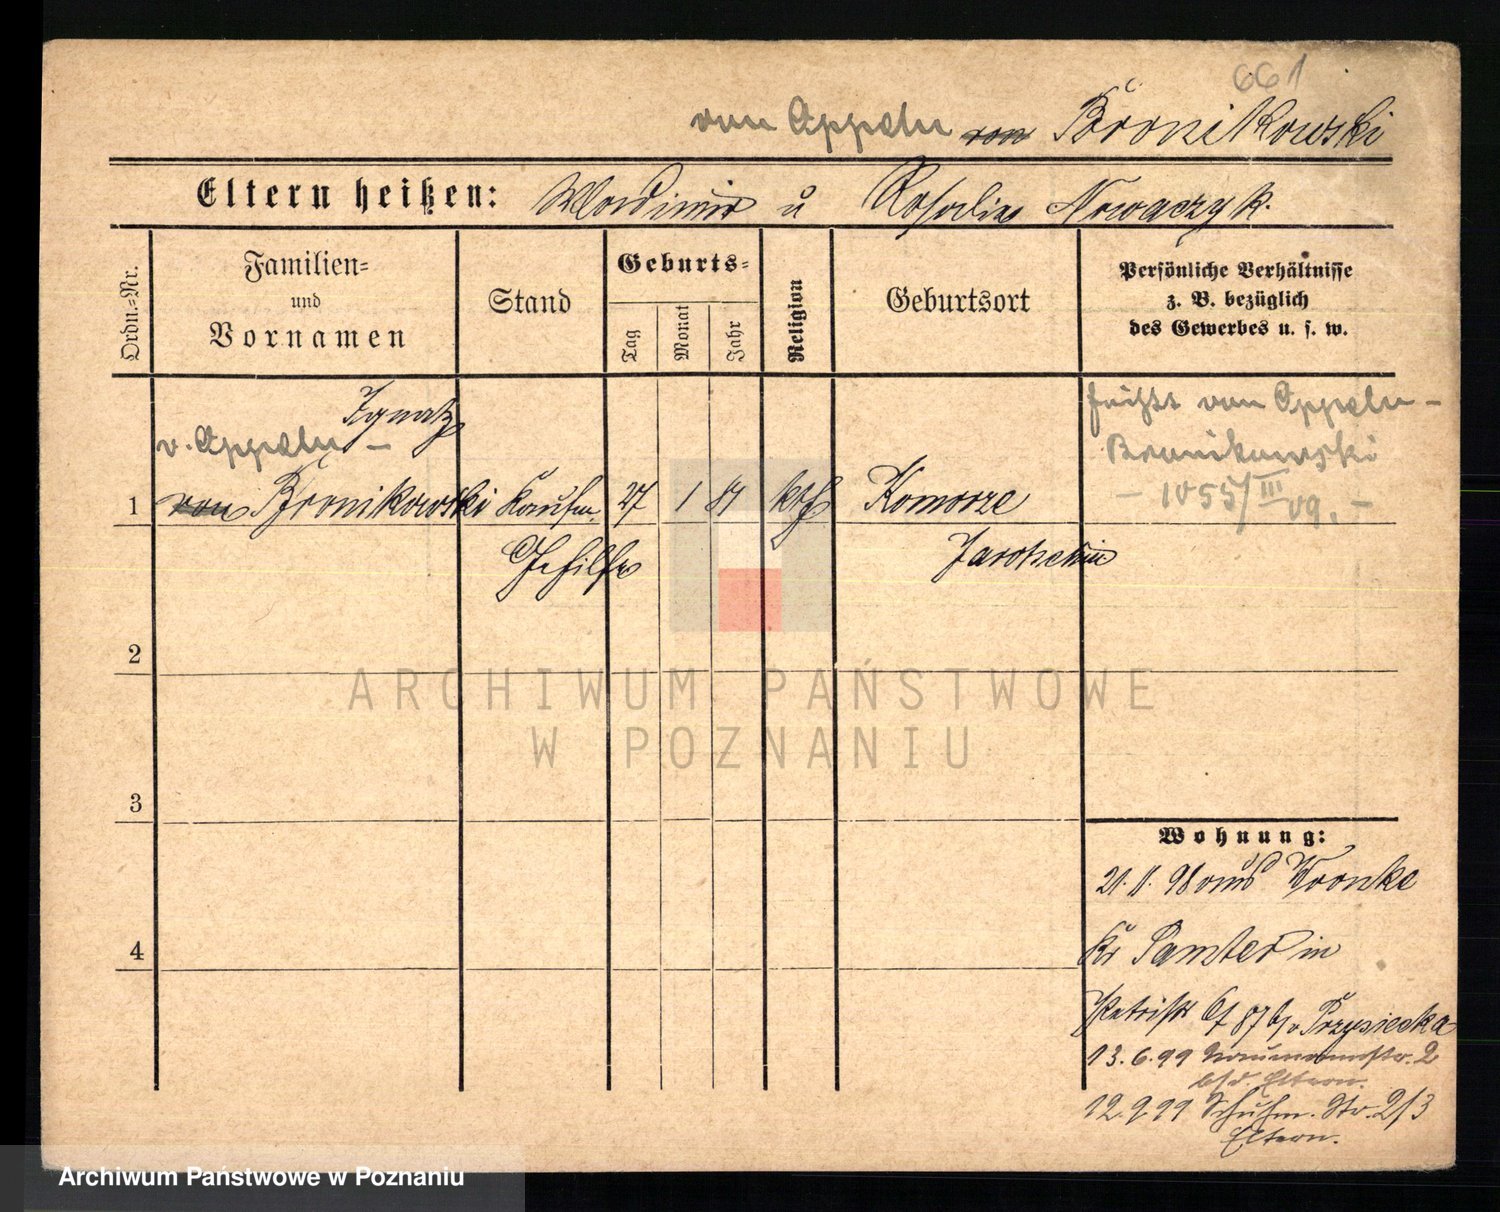 661
von Appeln von Bronikowski
Eltern heißen: Wladimir u Rosalia Nowaczyk.
Ordn.-Nr.
Familien-
und
Vornamen
Stand
Geburts-
Tag
Monat
Jahr
Religion
Geburtsort
Persönliche Verhältnisse
z. B. bezüglich
des Gewerbes u. s. w.
Ignatz
v. Appeln –
1 von Bronikowski Kaufm. 27 1 81 kth Komorze
Gehilfe Jarotschin
heißt von Appeln –
Bronikowski
– 1055/III 09. –
2
3
4
ARCHIWUM PAŃSTWOWE
W POZNANIU
Wohnung:
21. 11. 98 aus Wronke
Kr Samter in
87 b/v Przysiecka
13. 6. 99 Naumannstr. 2
b/d. Eltern.
12. 9 99 Schuhm. Str. 2/3
Eltern.
Archiwum Państwowe w Poznaniu